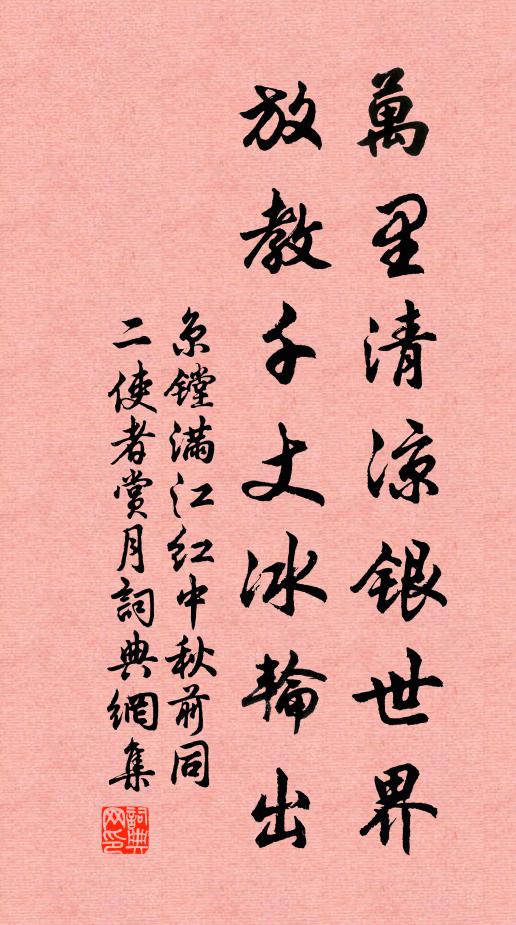 萬里清凉銀世界
放教千丈冰輪出
京鏜滿江紅中秋前同
二使者賞月詞典網集
詞典網印